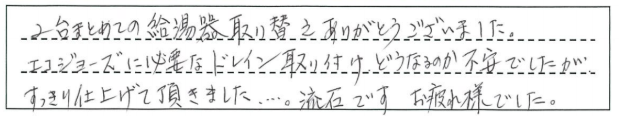 2台まとめての給湯器取り替えありがとうございました。
エコジョーズに必要なドレイン取り付け、どうなるのか不安でしたが
すっきり仕上げて頂きました…。流石です お疲れ様でした。